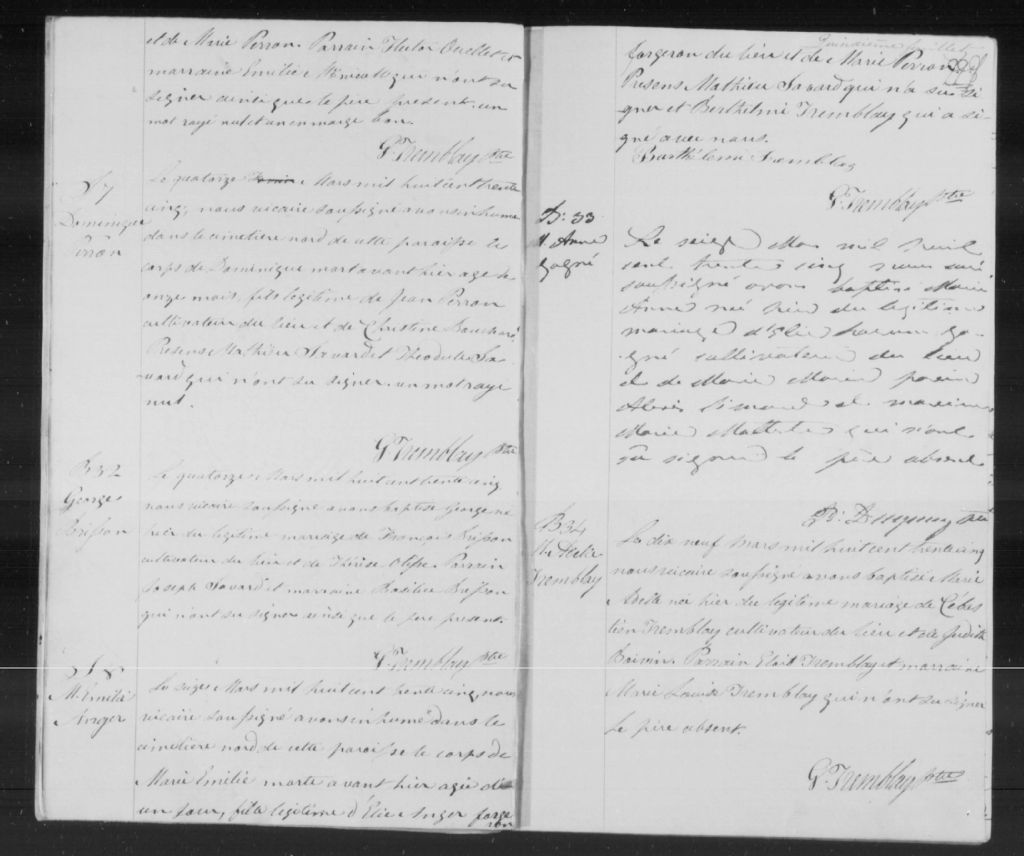 et de Marie Perron. Parrain Hector Ouellet et
marraine Emilie qui n'ont su
signer ainsi que le père présent. un
mot rayé nul et un en marge bon.
G. Tremblay Ptre
S 7
Dominique
Perron
Le quatorze Mars mil huit cent trente
cinq, nous vicaire soussigné avons inhumé
dans le cimetière nord de cette paroisse le
corps de Dominique mort avant hier agé de
onze mois, fils légitime de Jean Perron
cultivateur du lieu et de Christine Bouchard
Présens Mathieu Savard et Théodule Sa-
vard qui n'ont su signer. un mot rayé
nul.
G. Tremblay Ptre
B 32
George
Brisson
Le quatorze Mars mil huit cent trente cinq
nous vicaire soussigné avons baptisé George né
hier du légitime mariage de François Brisson
cultivateur du lieu et de Thérèse Parrain
Joseph Savard et marraine Basilice Brisson
qui n'ont su signer ainsi que le père présent.
G. Tremblay Ptre
S 8
M. Emilie
Anger
Le seize Mars mil huit cent trente cinq, nous
vicaire soussigné avons inhumé dans le
cimetière nord de cette paroisse le corps de
Marie Emilie morte avant hier agée d'
un jour, fille légitime d'Elie Anger forge
ron
Quinzième feuillet
forgeron du lieu et de Marie Perron
Présens Mathieu Savard qui n'a su si
gner et Berthélmi Tremblay qui a si-
gné avec nous.
Barthélemi Tremblay
G. Tremblay Ptre
B. 33
M. Anne
Gagné
Le seize Mars mil huit
cent trente cinq nous curé
soussigné avons baptisé Marie
Anne née hier du légitime
mariage d'Elie Ga-
gné cultivateur du lieu
et de Marie Morin parain
Alexis Simard et maraine
Marie qui n'ont
su signer le père absent.
Ptre
B 34
M. Adele
Tremblay
Le dix neuf Mars mil huit cent trente cinq
nous vicaire soussigné avons baptisé Marie
Adelle née hier du légitime mariage de Cébas
tien Tremblay cultivateur du lieu et de Judith
Boivin. Parrain Eloit Tremblay et marraine
Marie Louise Tremblay qui n'ont su signer
le père absent.
G. Tremblay Ptre